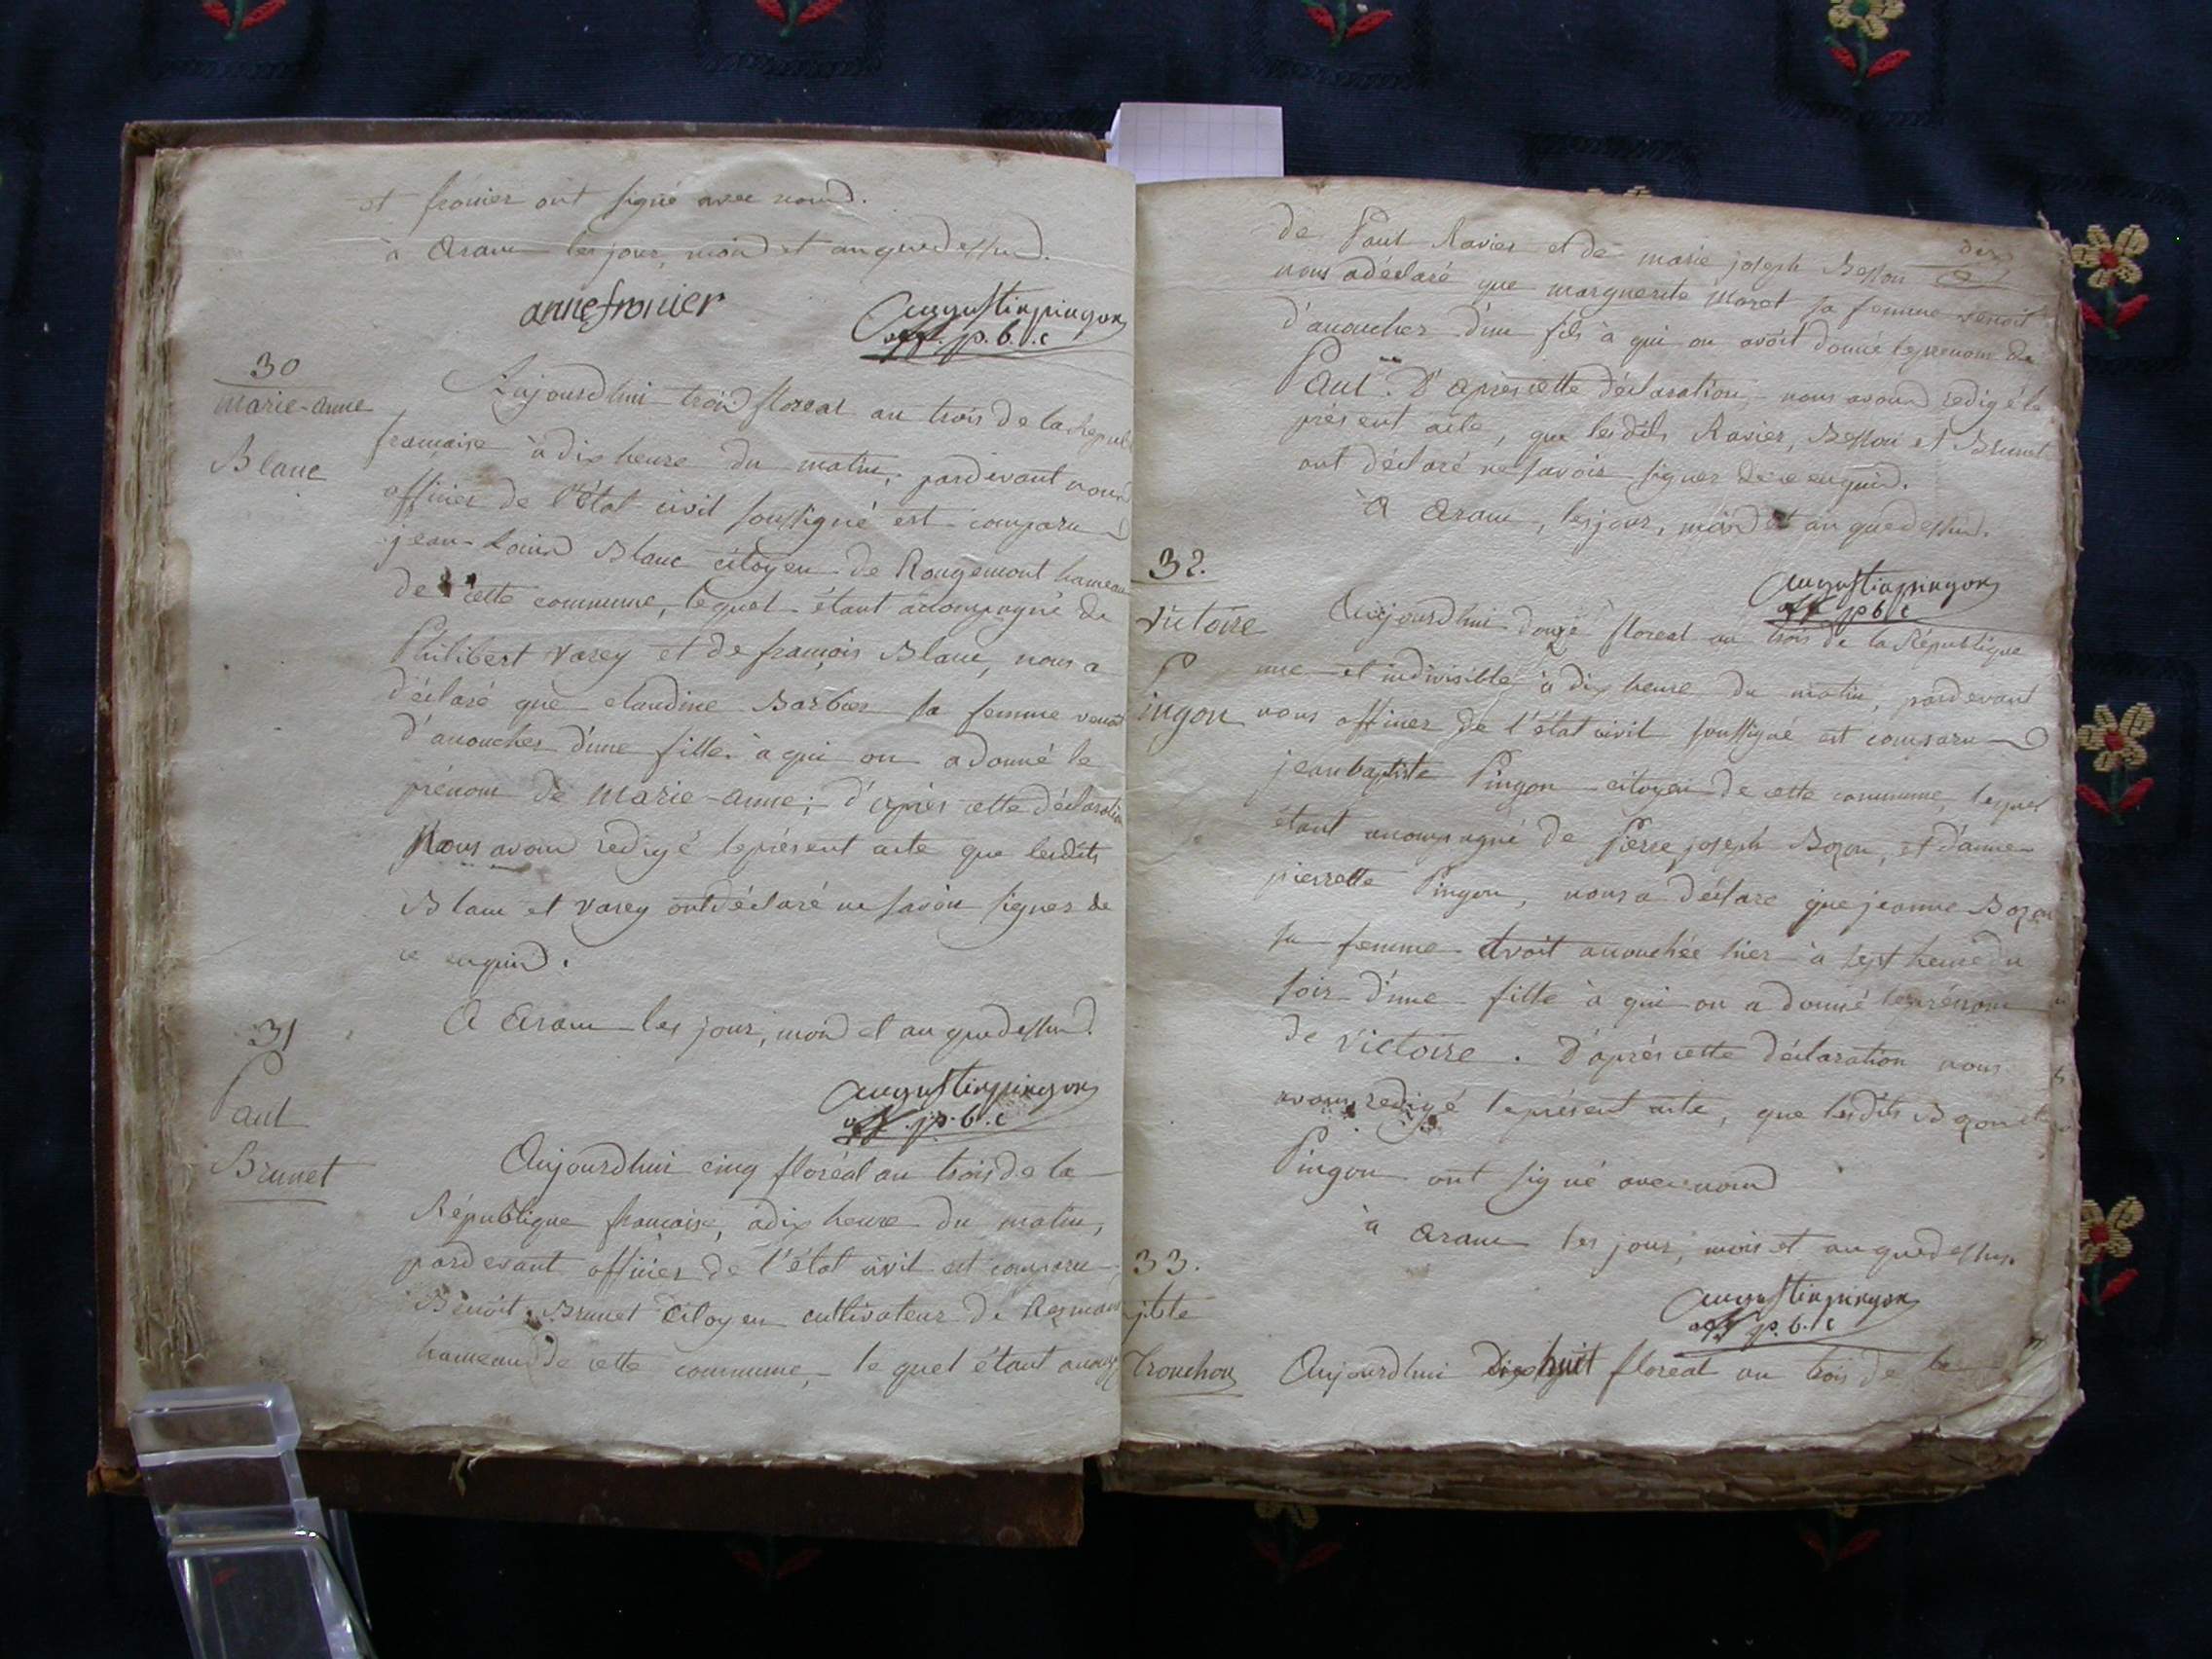 et fronier ont signé avec nous.
à aranc les jour, mois et an que dessus.
anne fronier
augustin pingon
off. p. b. c
30
marie-anne
Blanc
Aujourdhui trois floreal an trois de la Repub
francaise à dix heure du matin, pardevant nous
officier de l'état civil soussigné est comparu
jean-Louis Blanc citoyen de Rougemont hameau
de cette commune, lequel étant acompagné de
Philibert Varey et de françois Blanc, nous a
déclaré que claudine Barbier sa femme venoit
d'acoucher d'une fille à qui on a donné le
prénom de marie-anne; d'après cette déclaration
Nous avons redigé le présent acte que lesdits
Blanc et varey ont déclaré ne savoir signer de
ce enquis.
A aranc les jour, mois et an que dessus.
augustin pingon
off. p. b. c
31
Paul
Brunet
Aujourdhui cinq floréal an trois de la
République francaise, à dix heure du matin,
pardevant officier de l'état civil est comparu
Benoit Brunet Citoyen cultivateur de
hameau de cette commune, le quel étant acomp
de Paul Ravier et de marie joseph Besson
nous a déclaré que marguerite moret sa femme venoit
d'acoucher d'un fils à qui on avoit donné le prenom de
Paul. D'après cette déclaration, nous avons redigé le
présent acte, que lesdits Ravier, Besson et Brunet
ont déclaré ne savoir signer de ce enquis.
à aranc, les jour, mois et an que dessus.
augustin pingon
off p b c
32.
victoire
Pingon
Aujourdhui douze floreal an trois de la République
une et indivisible à dix heure du matin, pardevant
nous officier de l'état civil soussigné est comparu
jean baptiste Pingon citoyen de cette commune, lequel
étant acompagné de Pierre joseph Bozon, et d'anne
pierrette Pingon, nous a déclaré que jeanne Bozon
sa femme avoit acouchée hier à sept heure du
soir d'une fille à qui on a donné le prénom
de victoire. D'après cette déclaration nous
avons redigé le présent acte, que lesdits Bozon et
Pingon ont signé avec nous
à aranc les jour, mois et an que dessus.
augustin pingon
off p. b. c
33.
jbte
tronchon
Aujourdhui Dix huit floreal an trois de la